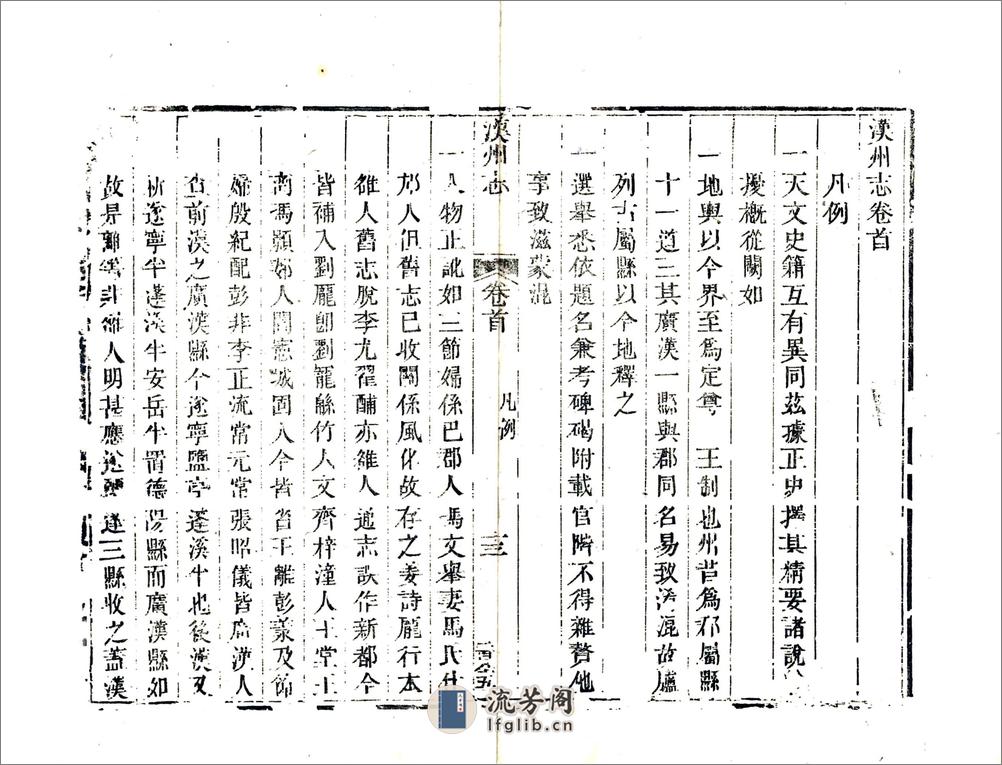 漢州志卷首
凡例
一天文史籍互有異同茲據正史擇其精要諸說
擾概從闕如
一地輿以今界至為定尊 王制也州昔為郡屬縣
十一道三其廣漢一縣與郡同名易致淆混故臚
列古屬縣以今地釋之
一選舉悉依題名兼考碑碣附載官階不得雜贅他
事致滋蒙混
漢州志
卷首
凡例
三
一人物正訛如三節婦係巴郡人馮文舉妻馬氏什
邡人但舊志已收關係風化故存之姜詩龐行本
雒人舊志脫李尤翟酺亦雒人通志誤作新都今
皆補入劉龐卽劉寵緜竹人文齊梓潼人王堂王
商馮顥郪人閻憲城固人今皆省王離彭濛及節
婦殷紀配彭非李正流常元常張昭儀皆廣漢人
查前漢之廣漢縣今遂寧鹽亭蓬溪半也後漢又
析遂寧半蓬溪半安岳半置德陽縣而廣漢縣如
故是 非雒人明甚應 三縣收之蓋漢
流芳阁
lfglib.cn